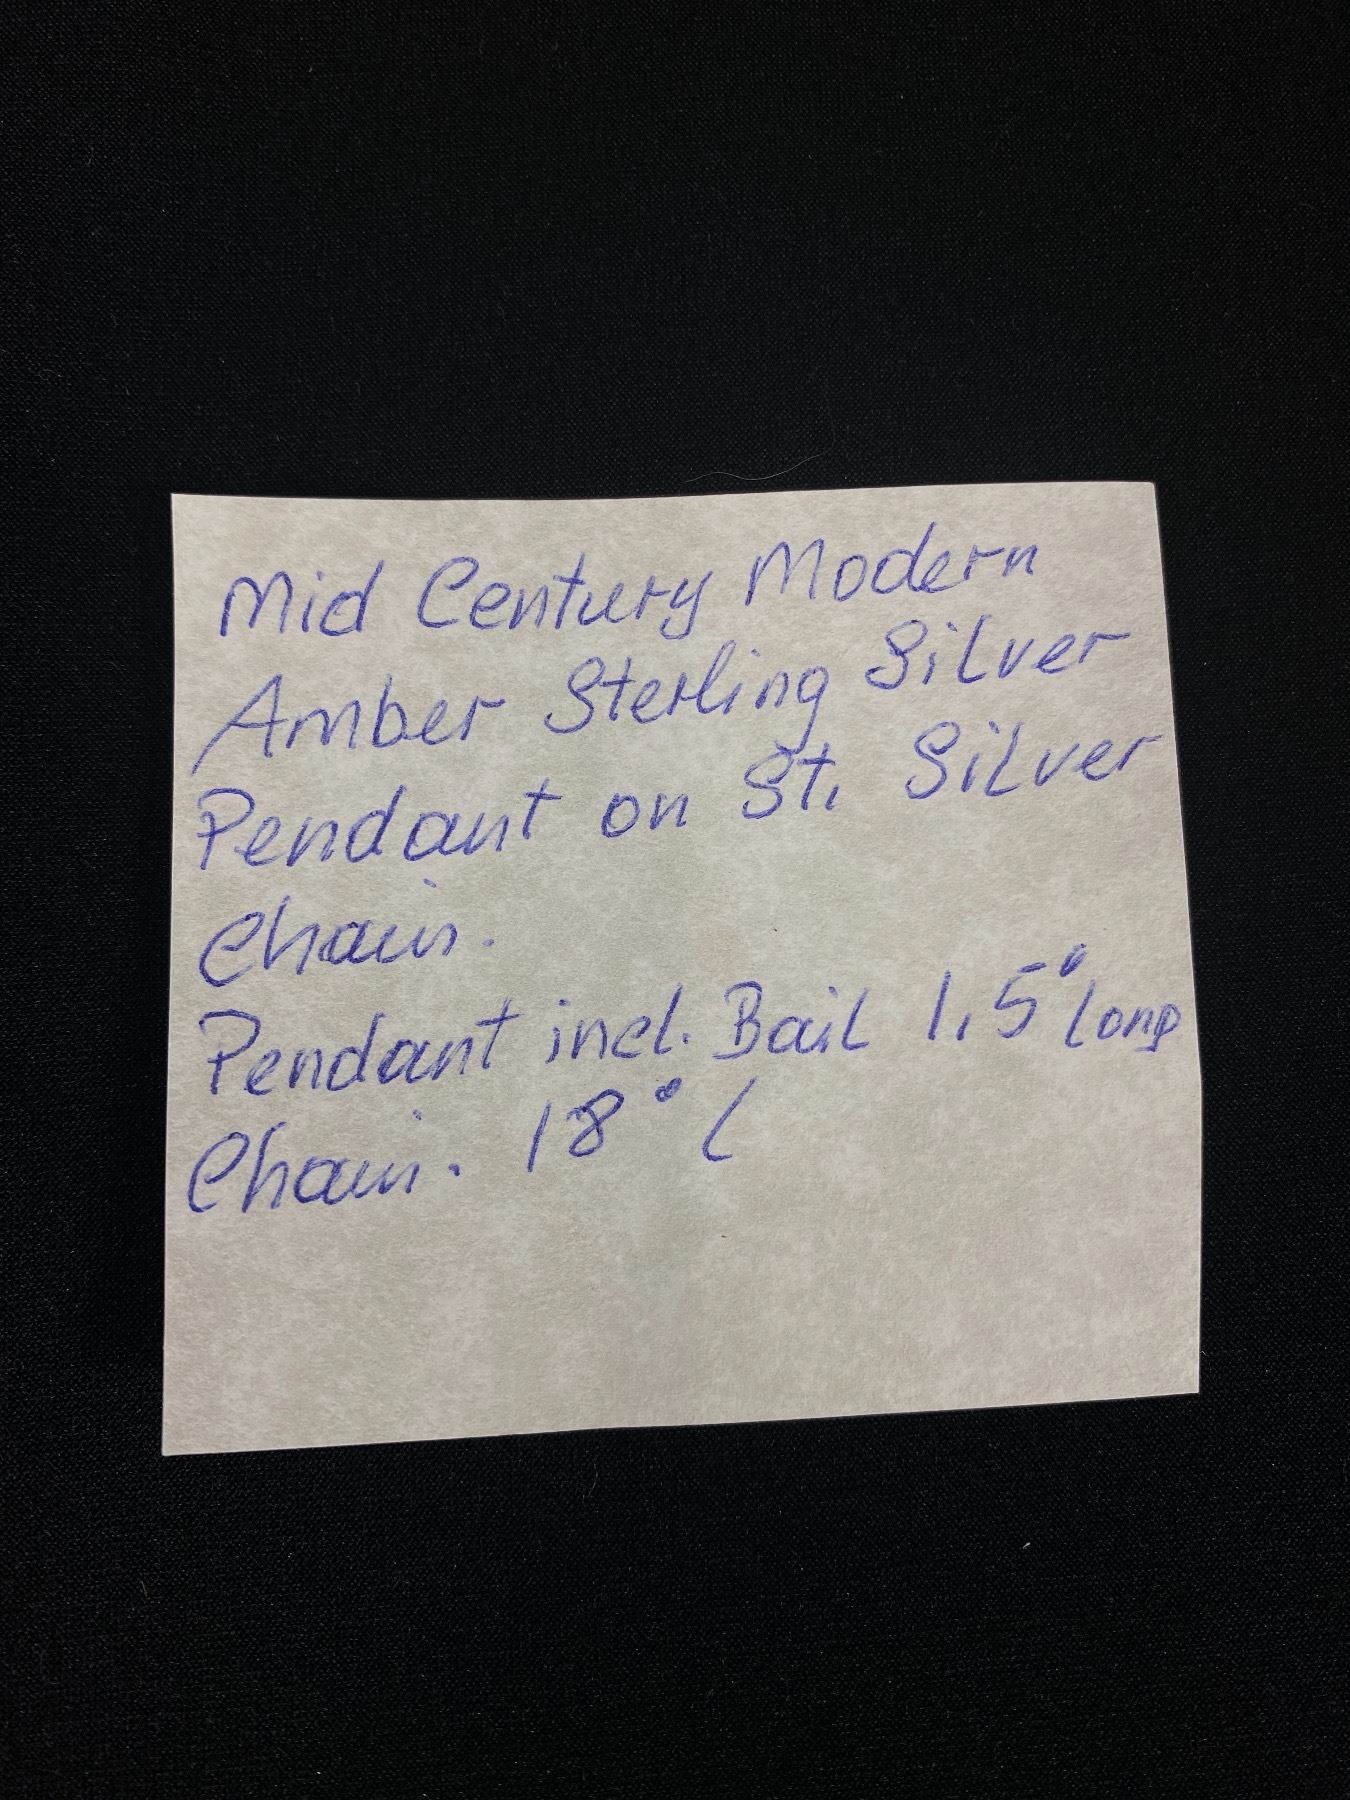 Mid Century Modern
Amber Sterling Silver
Pendant on St. Silver
Chain.
Pendant incl. Bail 1,5" long
Chain. 18" L